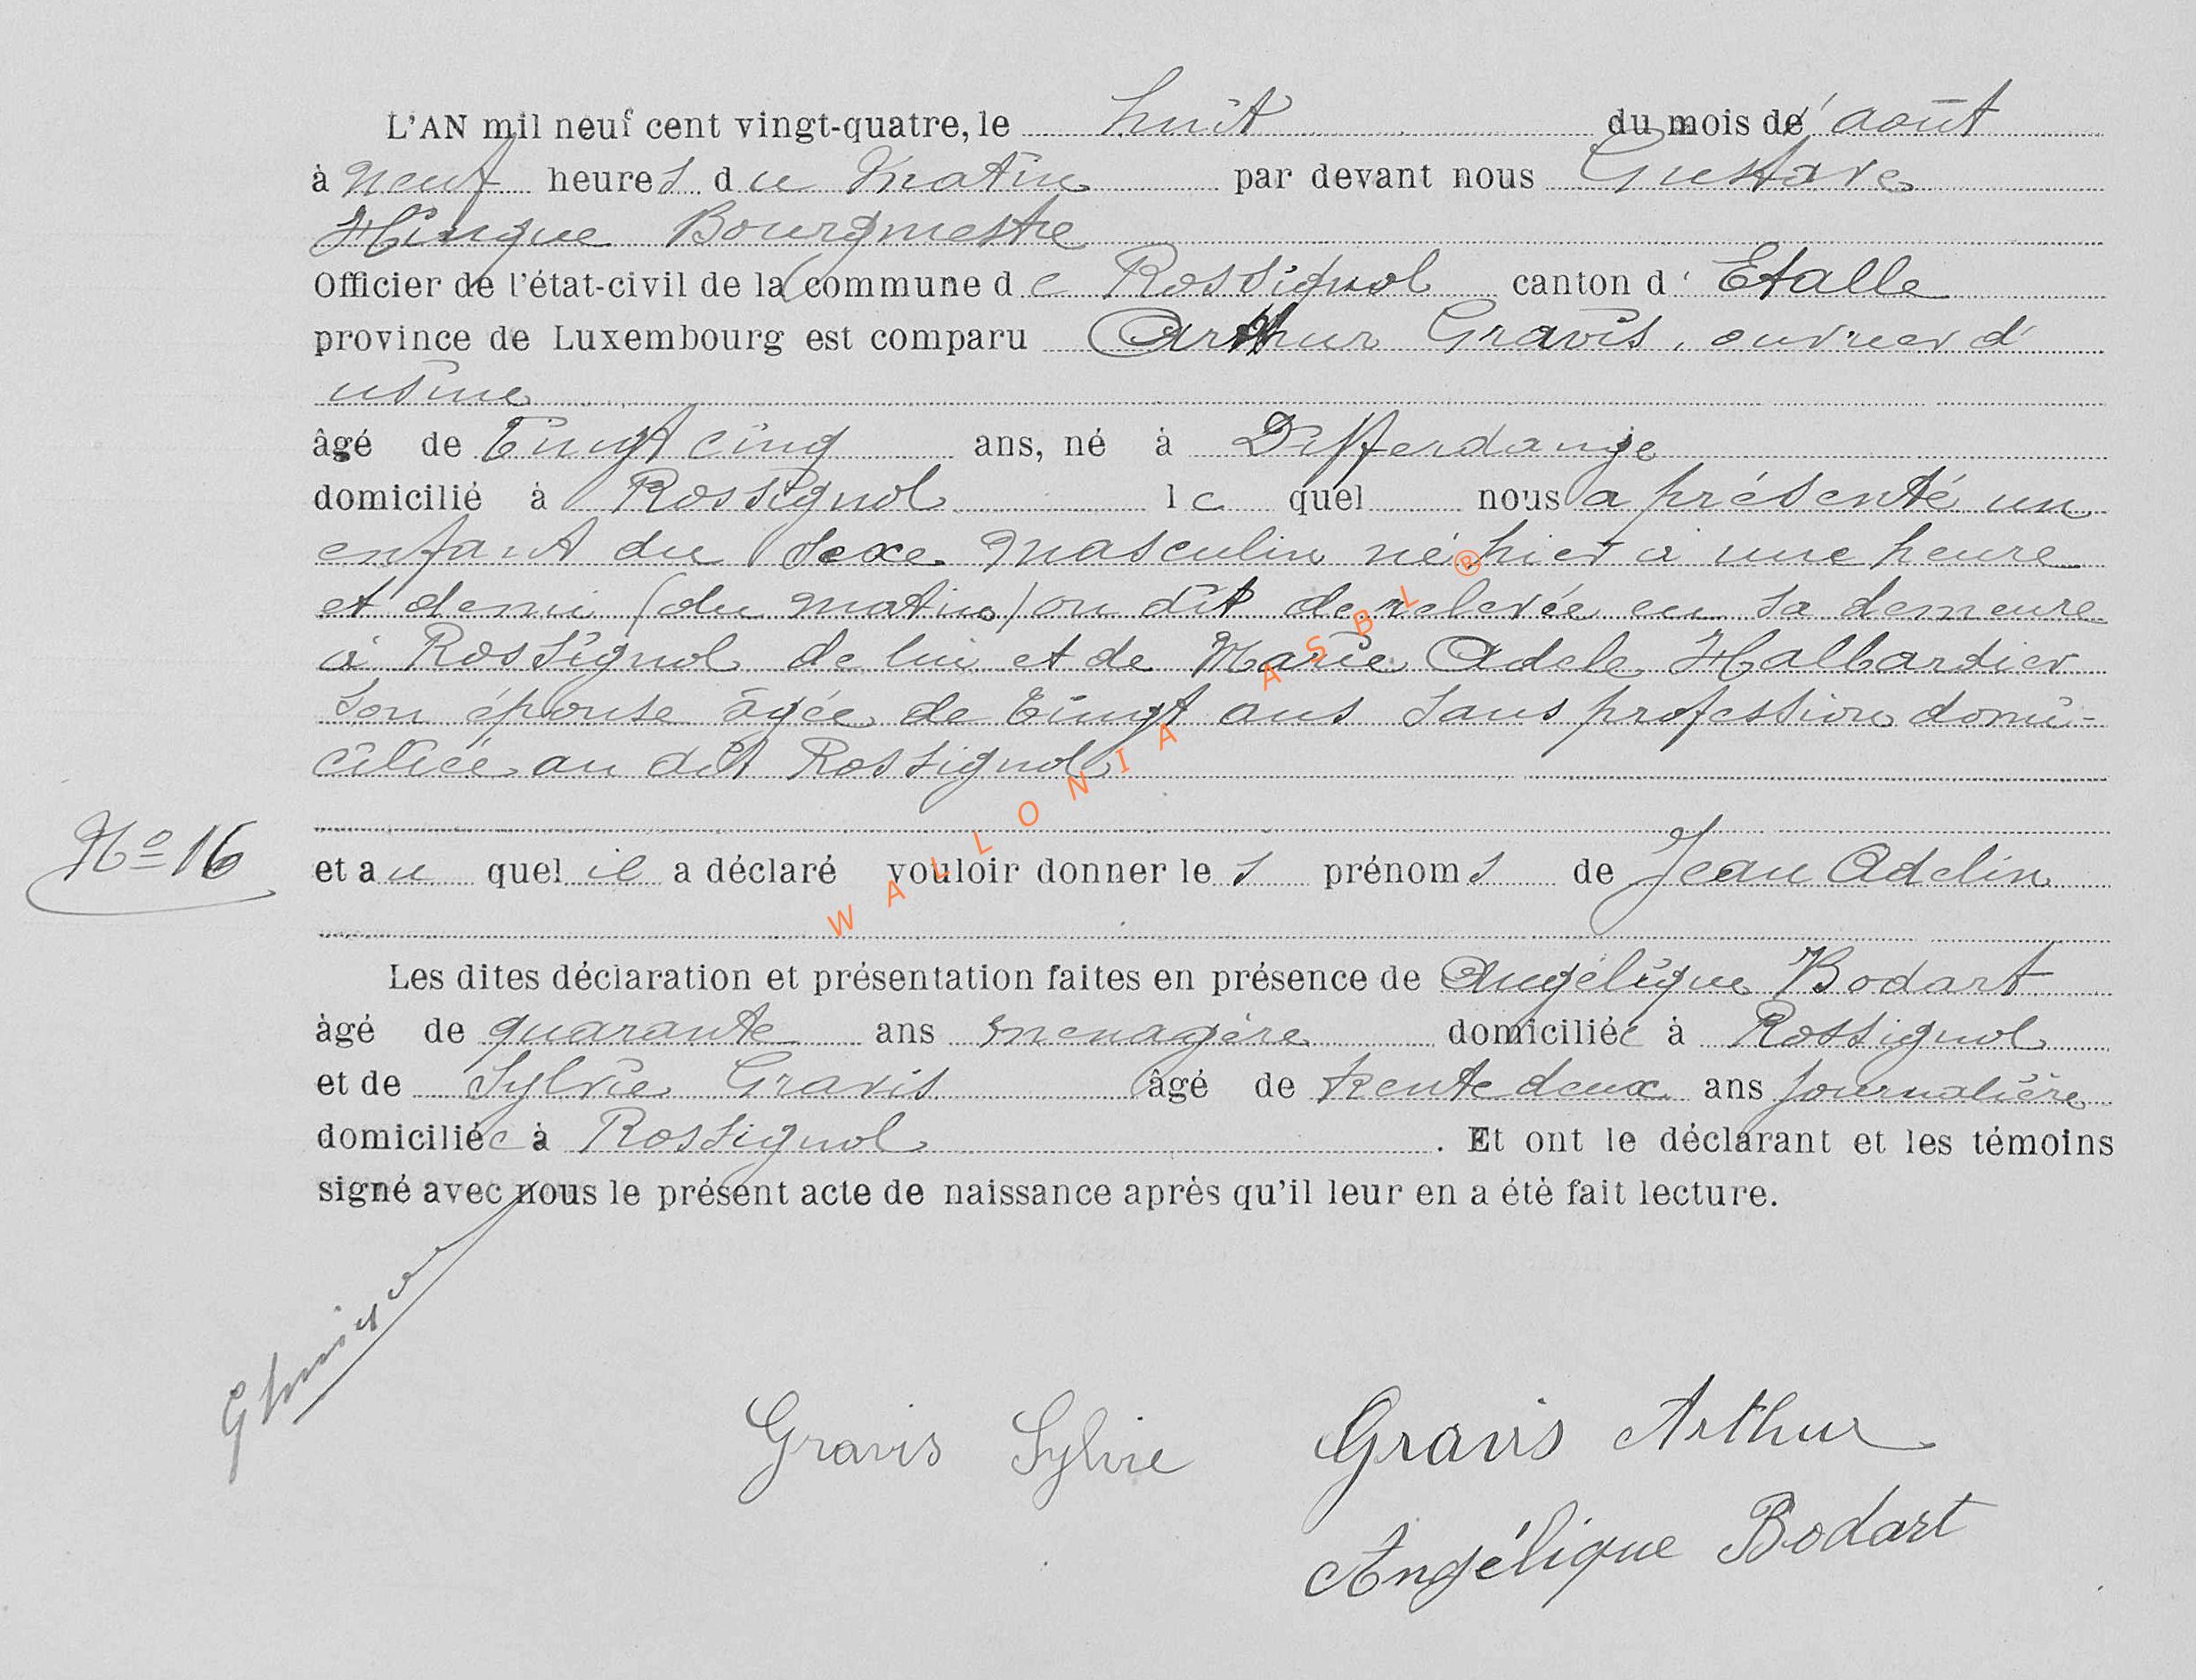 L'AN mil neuf cent vingt-quatre, le huit du mois de août
à neuf heures du matin par devant nous Gustave
Hinque Bourgmestre
Officier de l'état-civil de la commune de Rossignol canton d' Etalle
province de Luxembourg est comparu Arthur Gravis, ouvrier d'
usine
âgé de Vingt cinq ans, né à Differdange
domicilié à Rossignol le quel nous a présenté un
enfant du sexe masculin né hier à une heure
et demi (du matin) on dit de relevée en sa demeure
à Rossignol de lui et de Marie Adele Halbardier
son épouse âgée de Vingt ans sans profession domi-
ciliée au dit Rossignol
No 16
et au quel il a déclaré vouloir donner les prénoms de Jean Adelin
Les dites déclaration et présentation faites en présence de Angélique Bodart
âgé de quarante ans menagère domiciliée à Rossignol
et de Sylvie Gravis âgé de trente deux ans journalière
domiciliée à Rossignol. Et ont le déclarant et les témoins
signé avec nous le présent acte de naissance après qu'il leur en a été fait lecture.
Gravis Sylvie Gravis Arthur
Angélique Bodart
WALLONIA ASBL ®